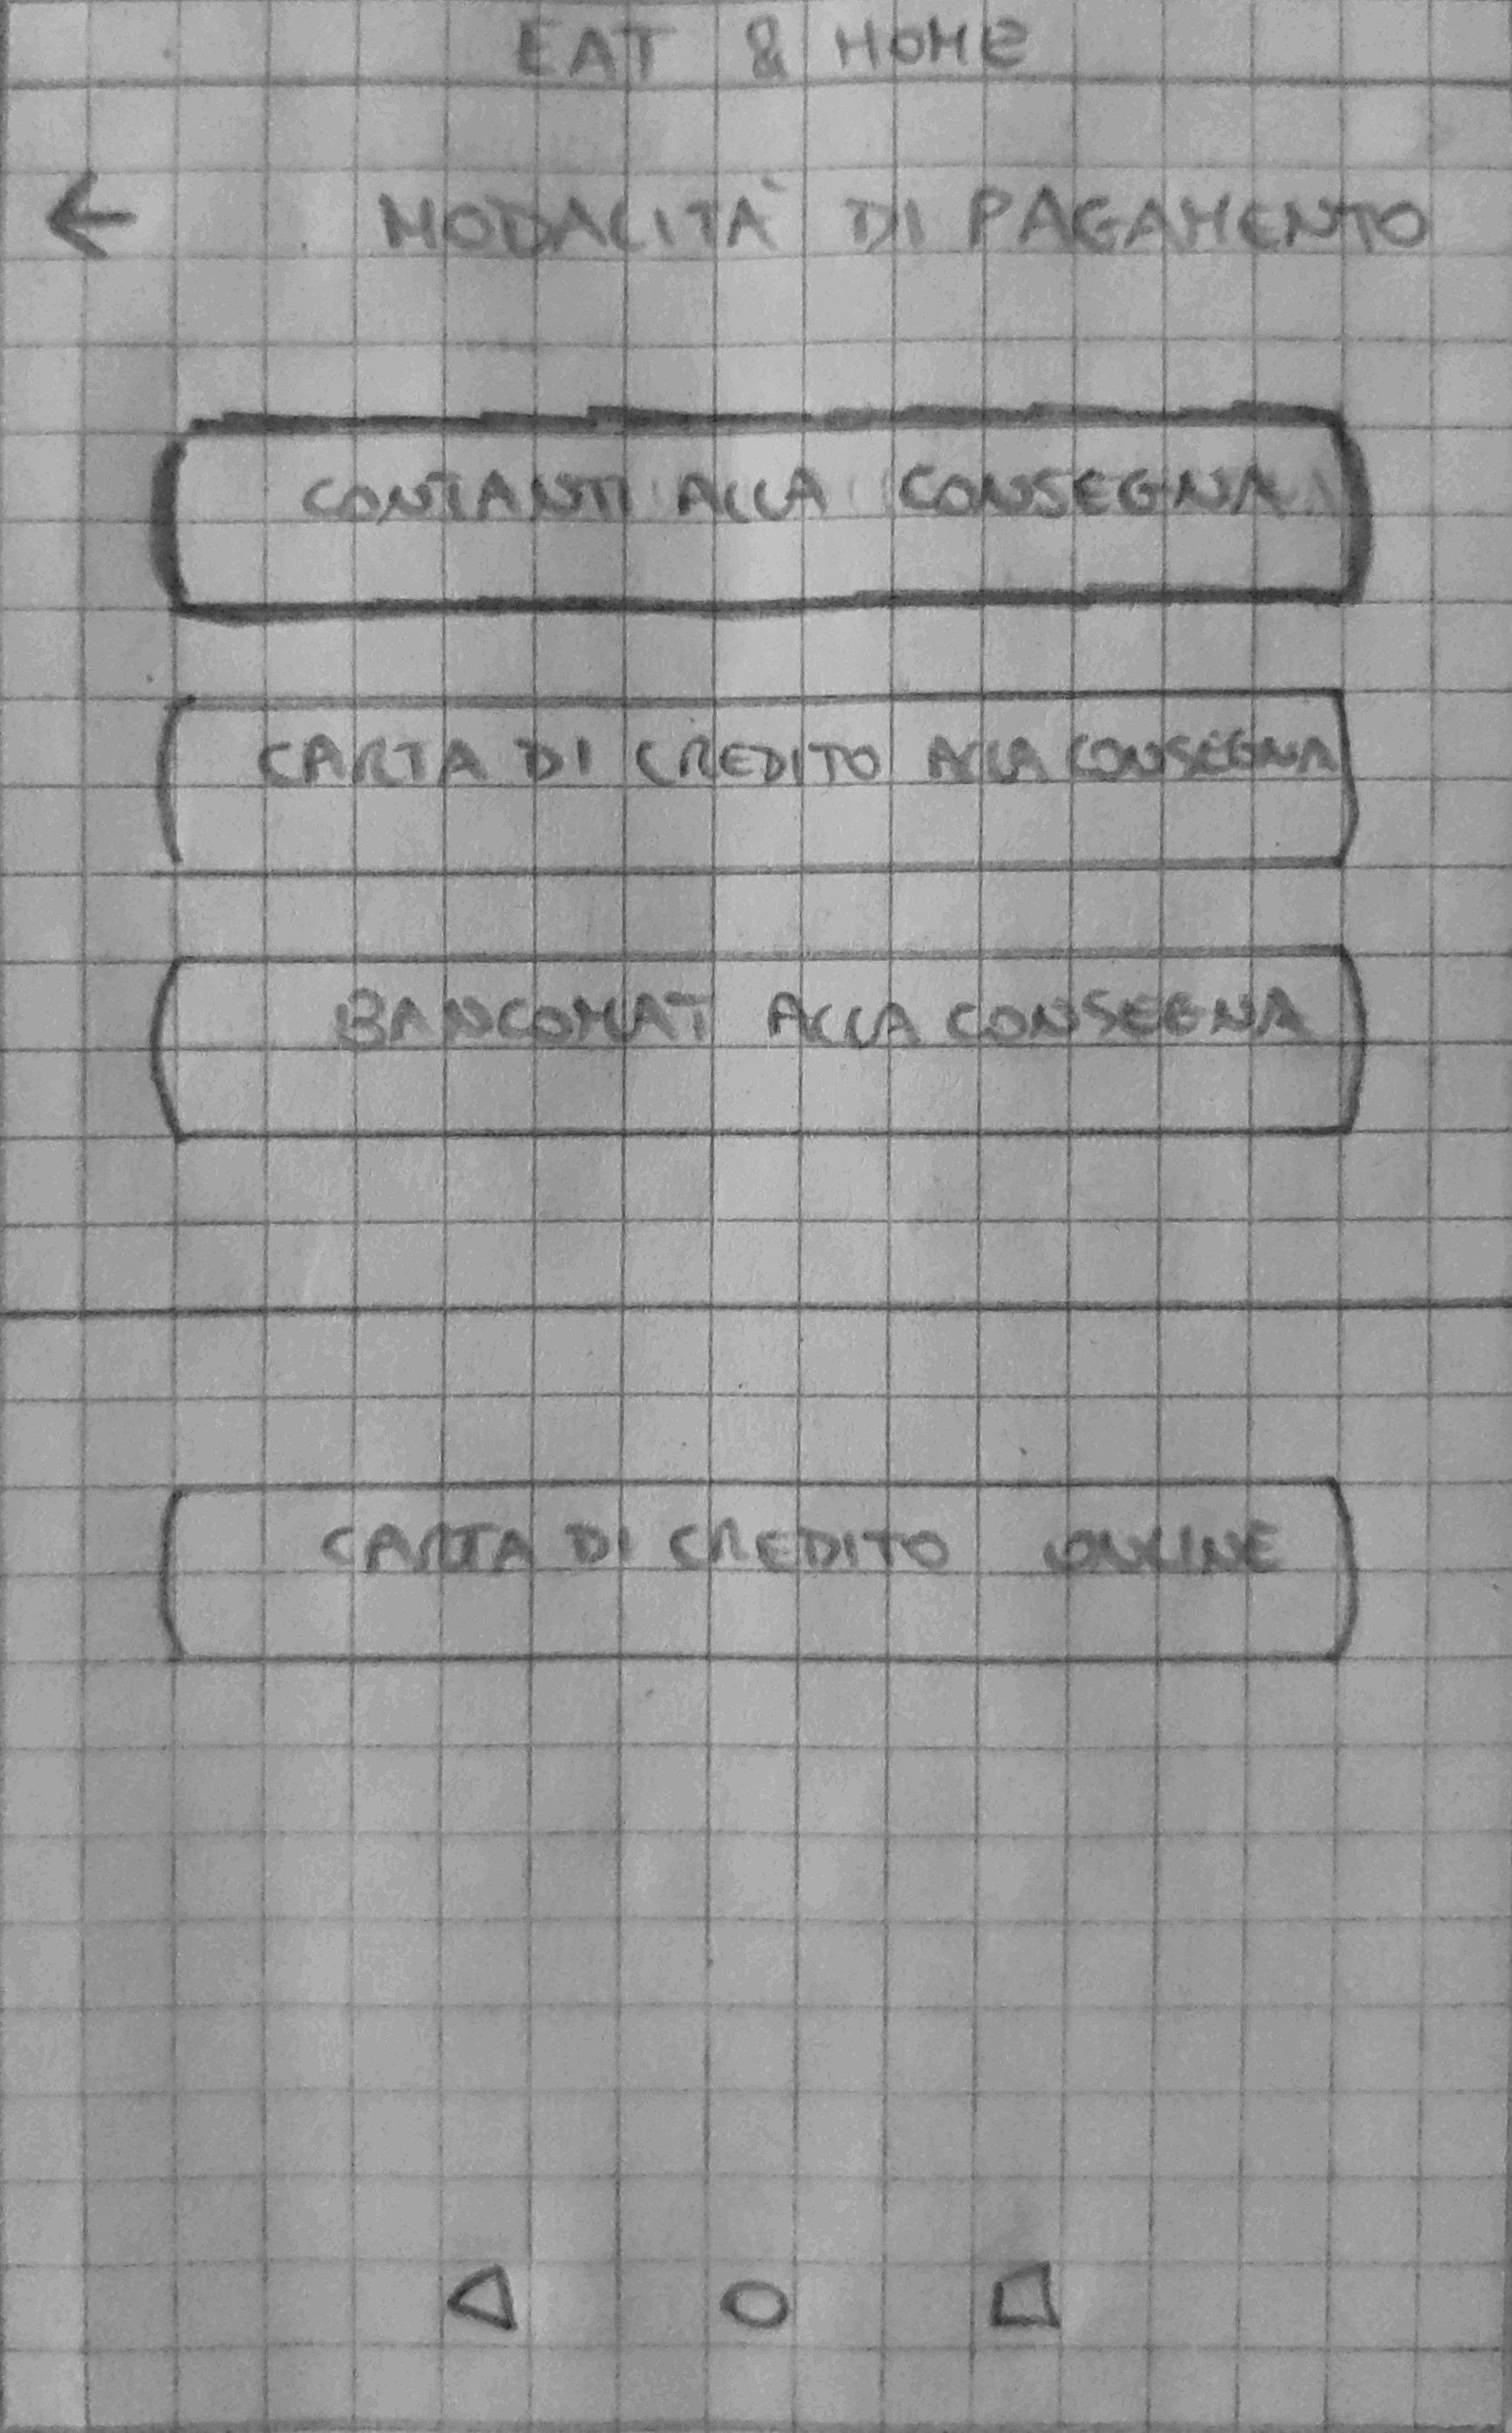 EAT & HOME
← MODALITÀ DI PAGAMENTO
CONTANTI ALLA CONSEGNA
CARTA DI CREDITO ALLA CONSEGNA
BANCOMAT ALLA CONSEGNA
CARTA DI CREDITO ONLINE